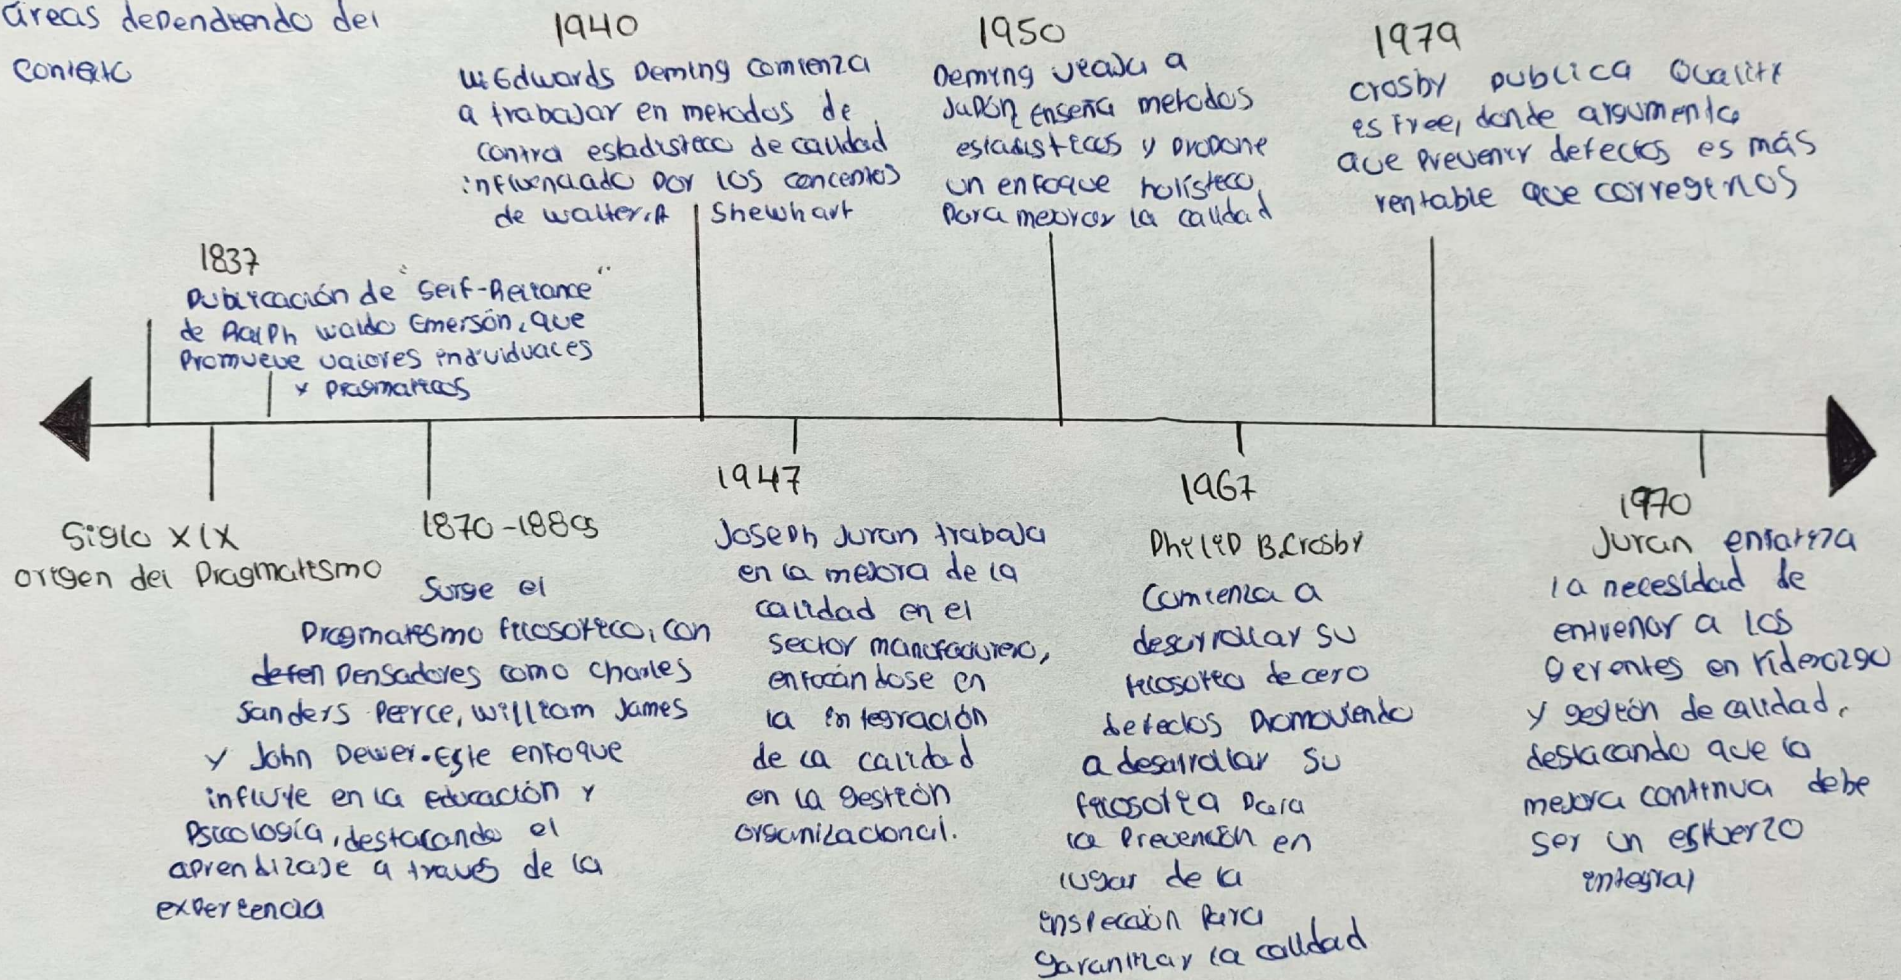 áreas dependiendo del
contexto
1940
W. Edwards Deming comienza
a trabajar en metodos de
control estadistico de calidad
influenciado por los conceptos
de Walter.A Shewhart
1950
Deming viaja a
Japón, enseña metodos
estadisticos y propone
un enfoque holistico
para mejorar la calidad
1979
Crosby publica Quality
is Free, donde argumenta
que prevenir defectos es más
rentable que corregirlos
1837
Publicación de "Self-Reliance"
de Ralph Waldo Emerson, que
Promueve valores individuales
y pragmaticos
Siglo XIX
origen del Pragmatismo
1870-1880s
Surge el
Pragmatismo filosofico, con
defen pensadores como Charles
Sanders Peirce, William James
y John Dewey. Este enfoque
influye en la educación y
Psicología, destacando el
aprendizaje a través de la
experiencia
1947
Joseph Juran trabaja
en la mejora de la
calidad en el
sector manufacturero,
enfocándose en
la integración
de la calidad
en la gestión
organizacional.
1967
Philip B.Crosby
Comienza a
desarrollar su
filosofia de cero
defectos promoviendo
a desarrollar su
filosofia para
la Prevención en
lugar de la
inspección para
garantizar la calidad
1970
Juran enfatiza
la necesidad de
entrenar a los
gerentes en liderazgo
y gestión de calidad,
destacando que la
mejora continua debe
ser un esfuerzo
integral